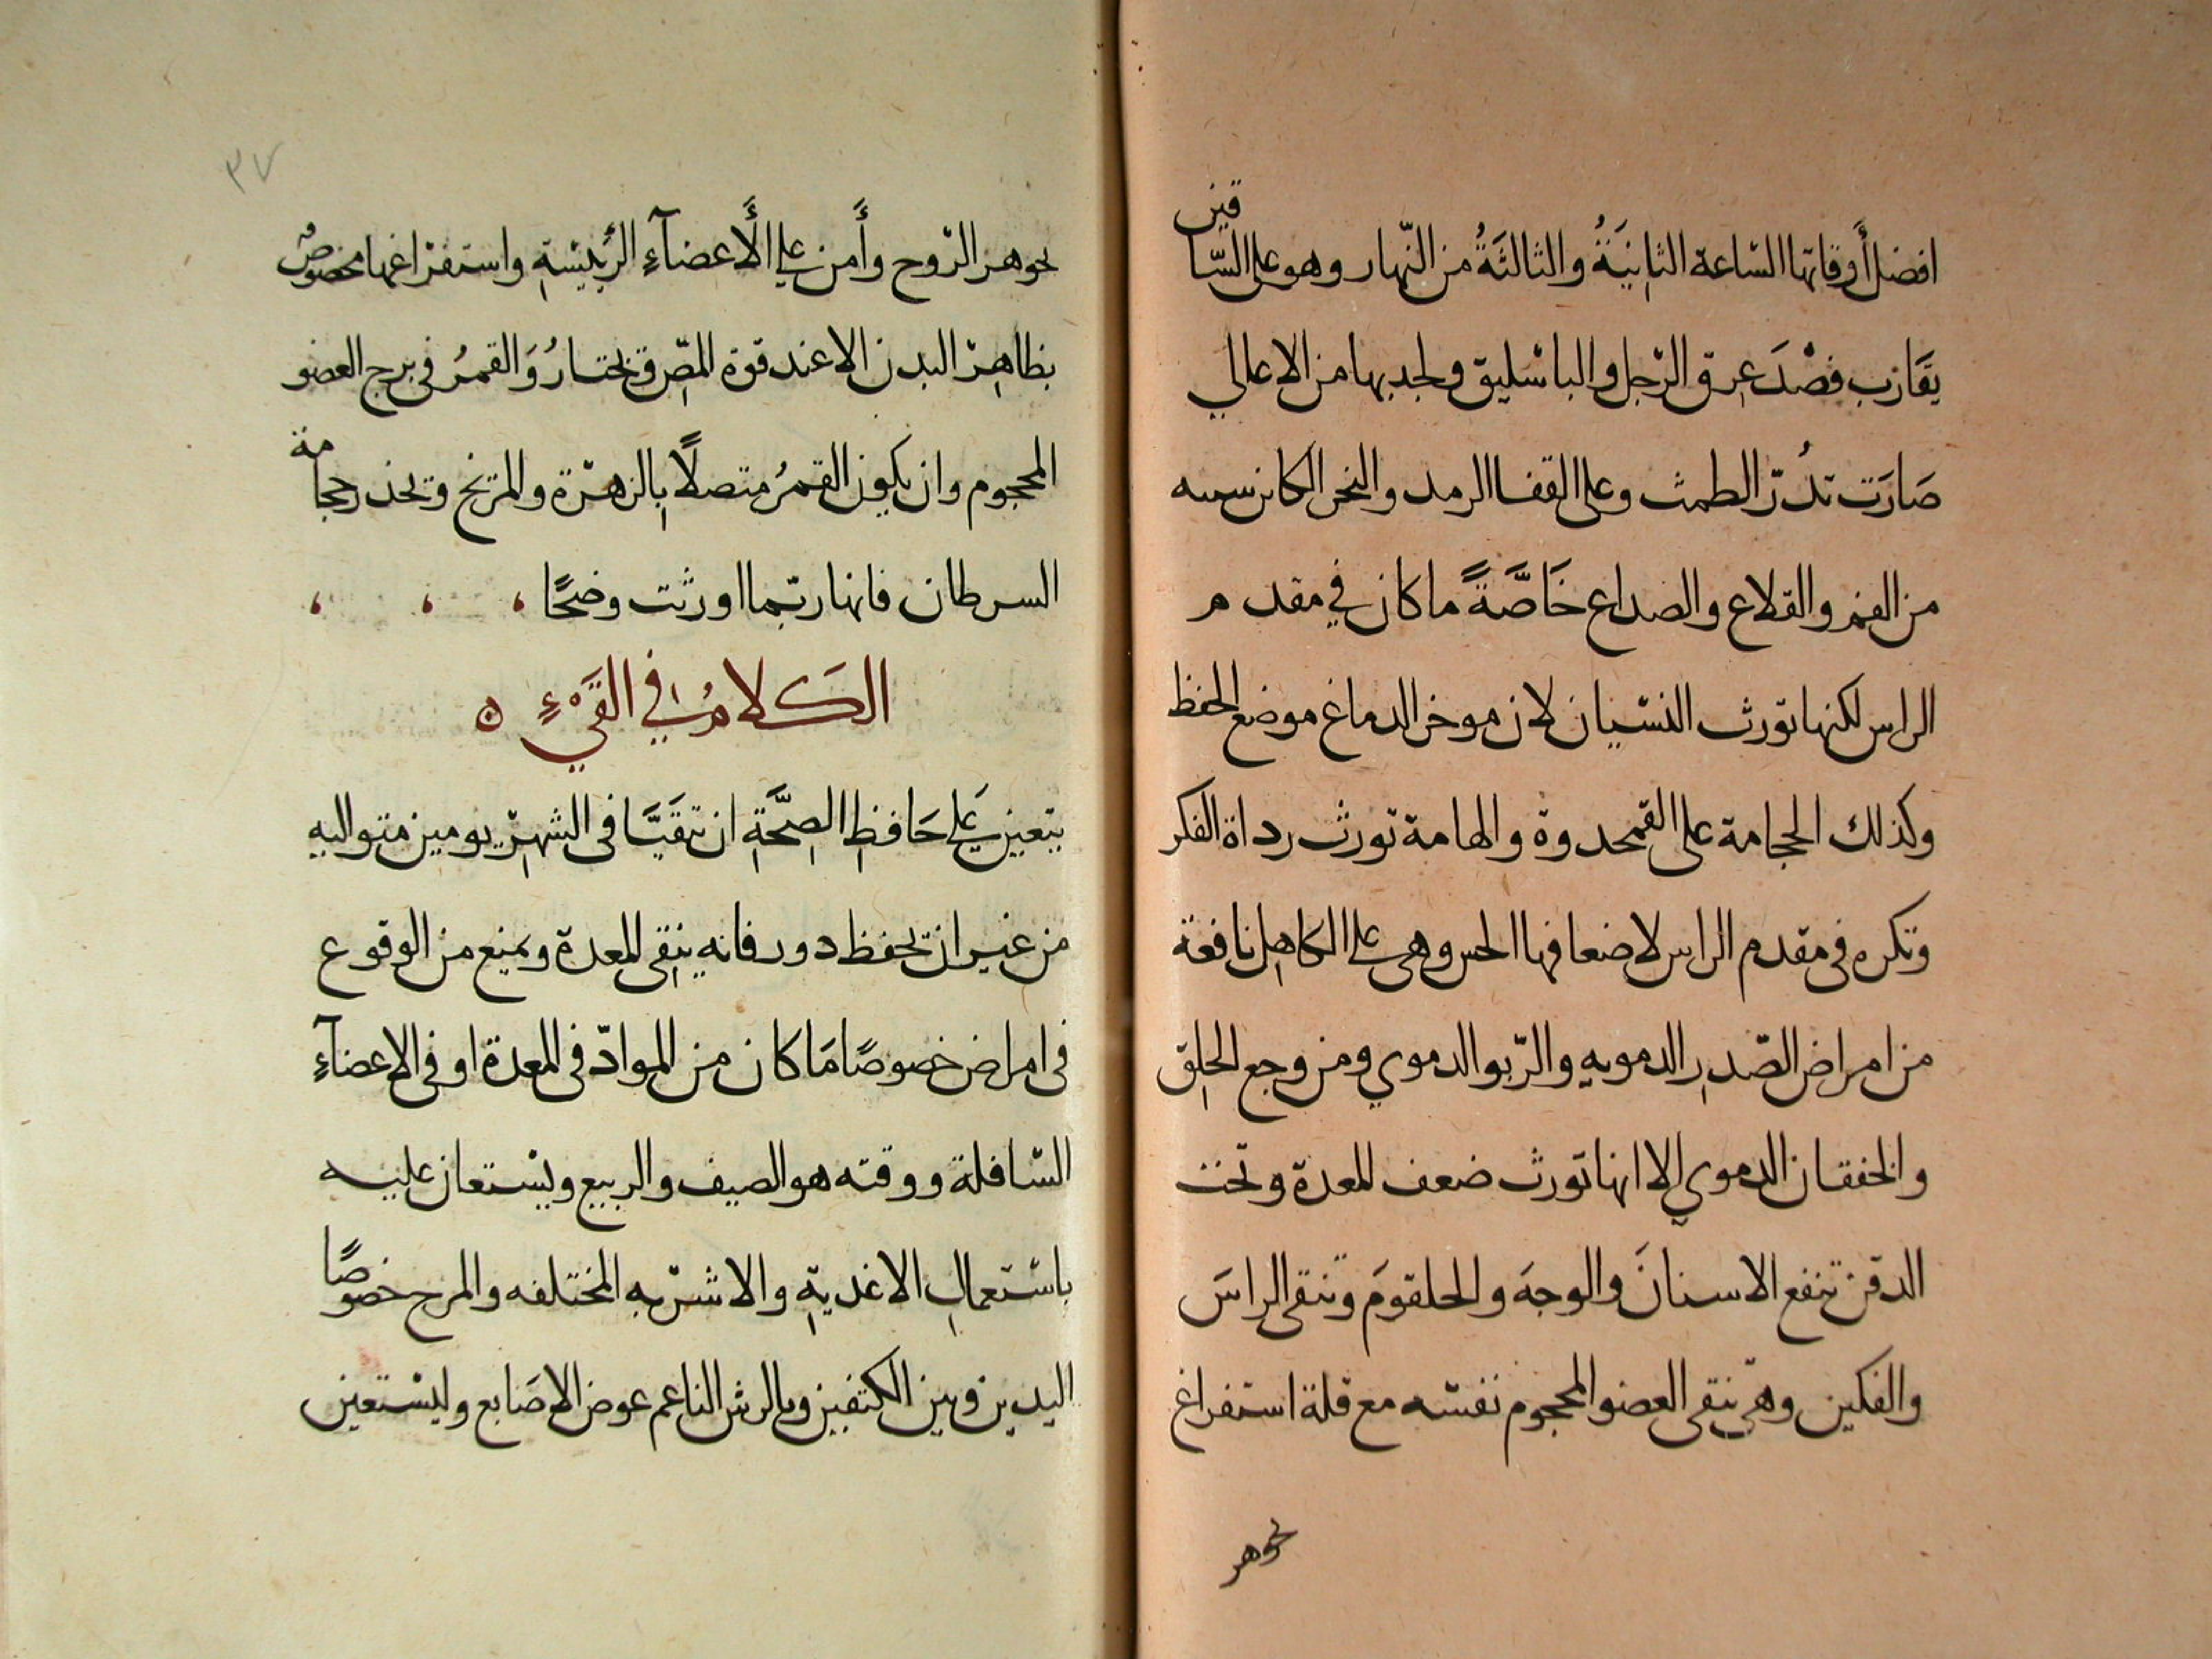 افضل أَوقاتها السّاعة الثانِيَةُ والثالثَةُ من النّهار وهو على السّاقين
يقَارب فصْدَ عِرق الرّجل والباسْليق ولجدبها من الاعالي
صَارَت تدُرّ الطمث وعلى القفا الرمد والبخر الكائن سببه
من الفم والقلاع والصداع خَاصَّةً ما كان في مقدم
الراس لكنها تورث النسْيان لان موخر الدماغ موضع الحفظ
وكذلك الحجامة على القمحدوة والهامة تورث رداة الفكر
وتكره فى مقدم الراس لاضعافها الحس وهى على الكاهل نافعة
من امراض الصّدرِ الدمويه والرّبو الدموي ومن وجع الحلق
والخفقان الدموي الا انها تورث ضعف المعدة وتحت
الدقن تنفع الاسنانَ والوجهَ والحلقومَ وتنقى الراسَ
والفكين وهى تنقى العضو المحجوم نفسْه مع قلة استفراغ
لجوهر
٣٧
لجوهر الرّوح وأَمن على الأَعضآءِ الرّئيسْةِ واستفرْاغها مخصوصٌ
بظاهِرْ البدن الا عند قوة المصّ وتختارُ وَالقمرُ فى برج العضو
المحجوم وان يكون القمرُ متصلاً بِالزهرْة والمرّيخ وتحذر حجامة
السرطان فانها ربّما اورثت وضحًا
الكَلامُ في القَيْءِ ٥
يتعين عَلى حَافظِ الصِحَّةِ ان يتقَيَّا فى الشهرْ يومين متواليه
من غير ان يحفظ دور فانه ينقى المعدة ويمنع من الوقوع
فى امراض خصوصًا مَا كان من الموادّ فى المعدة او فى الاعضآءِ
السّافلة ووقته هو الصيف والربيع ويسْتعان عليه
باسْتعمالِ الاغديةِ والاشرْبه المختلفه والمرح خصوصًا
اليدين وبين الكتفين وبالريش الناعم عوض الاصَابع وليسْتعين